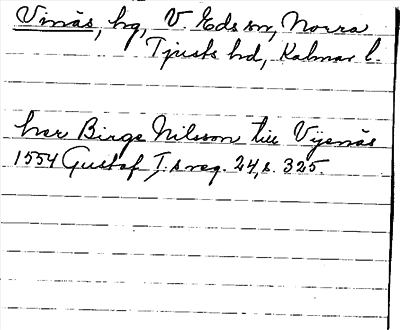 Vinäs, hg, V Eds sn, Norra
Tjusts hd, Kalmar l.
her Birge Nilsson till Vijenäs
1554 Gustaf I:s reg. 24, s. 325.